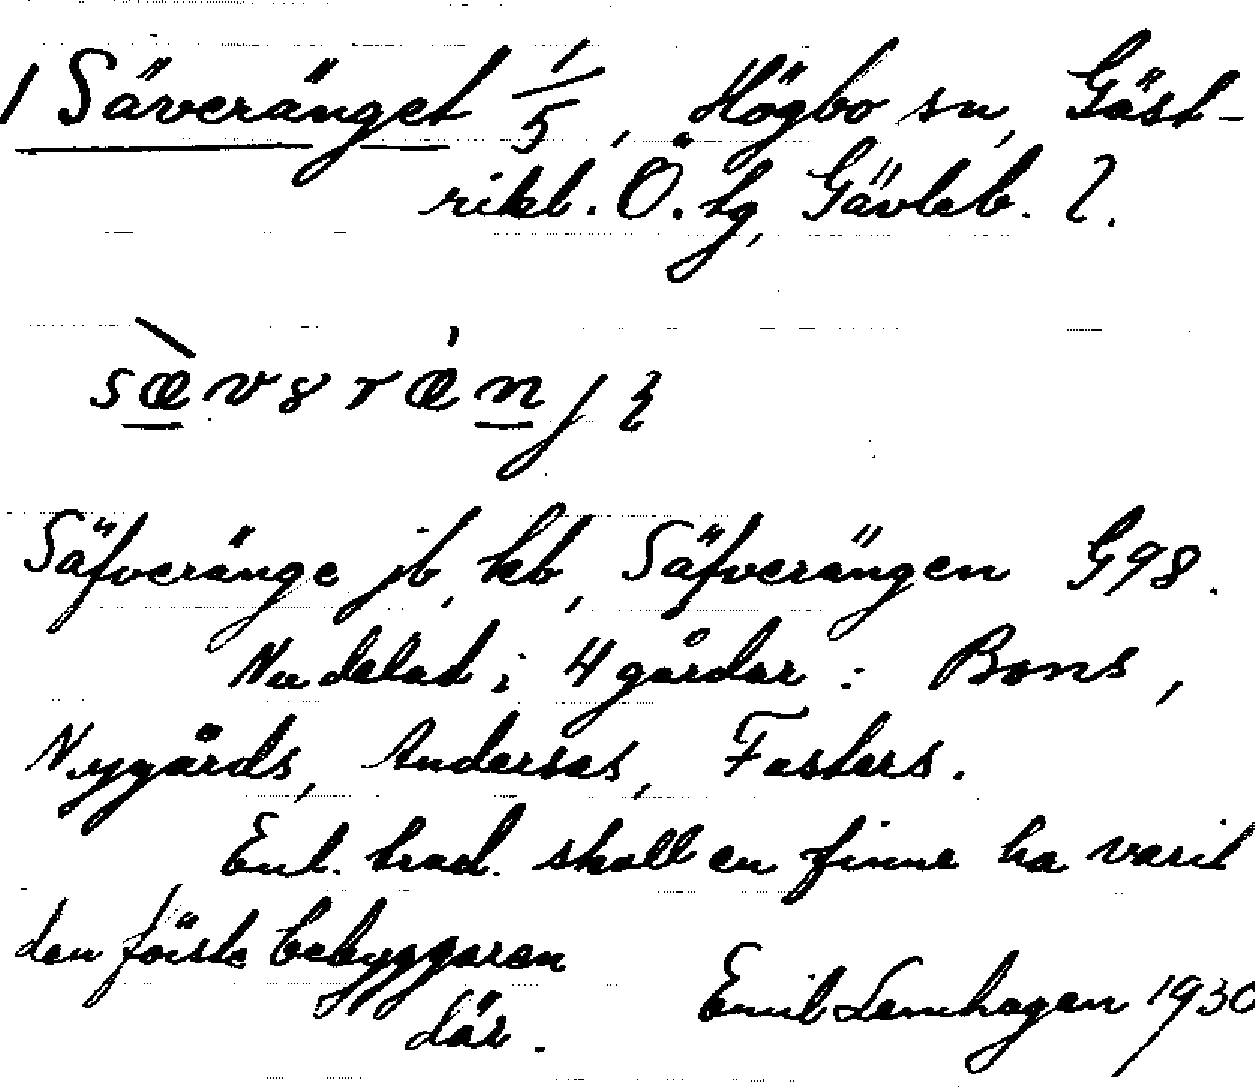 1 Säveränget 1/5, Högbo sn, Gäst-
rikl. Ö. tg, Gävleb. l.
Säfveränge jb, kb, Säfverängen G98.
Nu delad i 4 gårdar: Bons,
Nygårds, Andersas, Fasters.
Enl. trad. skall en finne ha varit
den förste bebyggaren
där.
Emil Lenhagen 1930